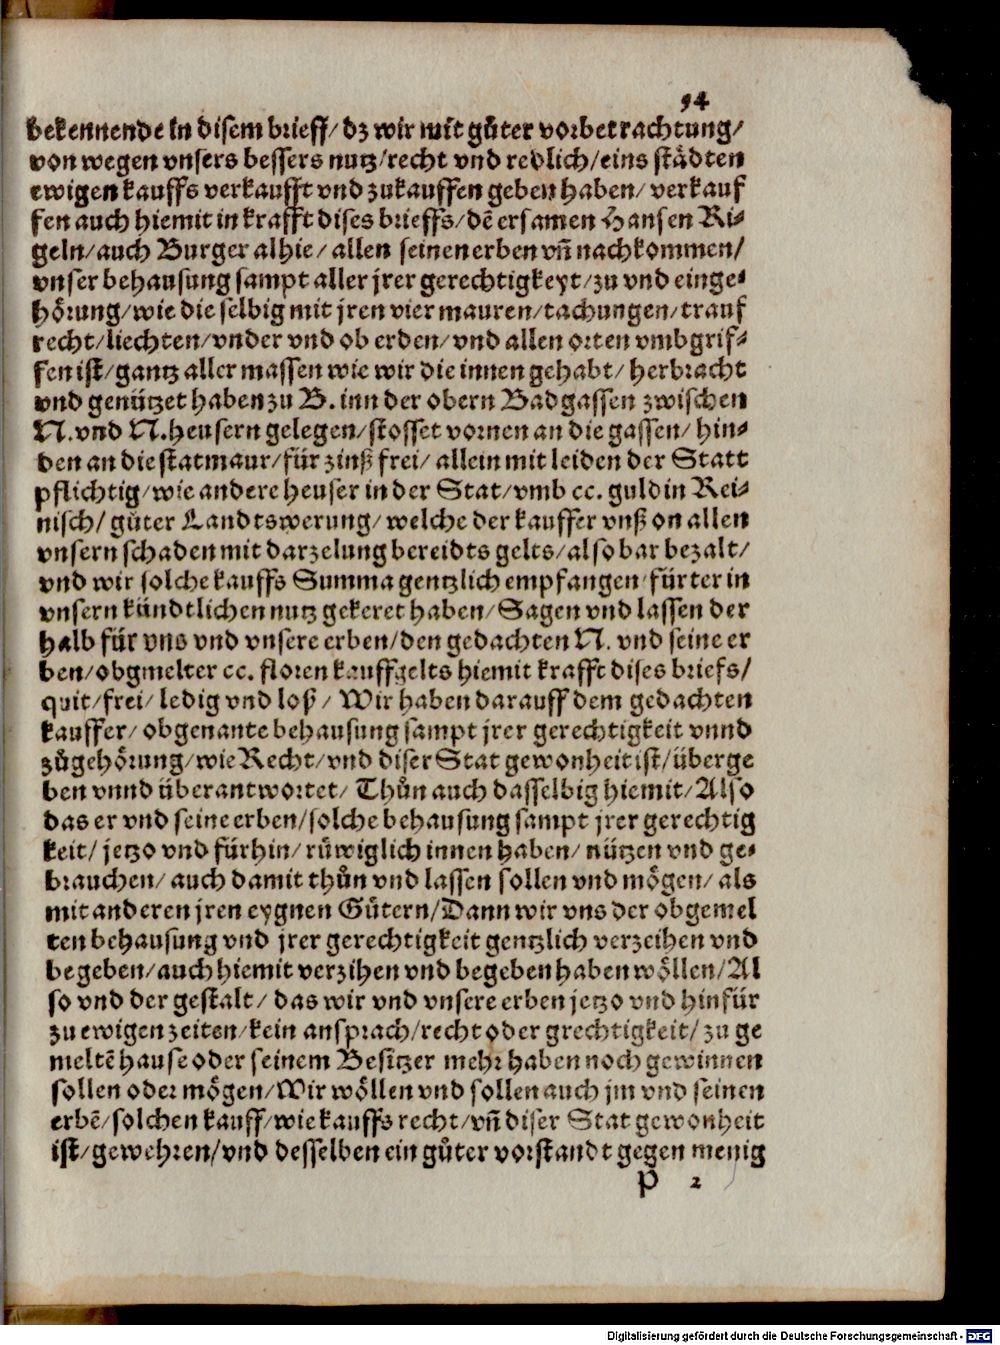 54
bekennende in disem brieff/ dz wir mit gůter vorbetrachtung/
von wegen vnsers bessers nutz/ recht vnd redlich/ eins städten
ewigen kauffs verkaufft vnd zukauffen geben haben/ verkauf
fen auch hiemit in krafft dises brieffs/ dẽ ersamen Hansen Ri⸗
geln/ auch Burger alhie/ allen seinen erben vñ nachkommen/
vnser behausung sampt aller jrer gerechtigkeyt/ zu vnd einge⸗
hörung/ wie die selbig mit jren vier mauren/ tachungen/ trauf
recht/ liechten/ vnder vnd ob erden/ vnd allen orten vmbgrif⸗
fen ist/ gantz aller massen wie wir die innen gehabt/ herbracht
vnd genützet haben zu B. inn der obern Badgassen zwischen
N. vnd N. heusern gelegen/ stosset vornen an die gassen/ hin⸗
den an die statmaur/ für zinß frei/ allein mit leiden der Statt
pflichtig/ wie andere heuser in der Stat/ vmb cc. guldin Rei⸗
nisch/ gůter Landtswerung/ welche der kauffer vnß on allen
vnsern schaden mit darzelung bereidts gelts/ also bar bezalt/
vnd wir solche kauffs Summa gentzlich empfangen/ fürter in
vnsern kündtlichen nutz gekeret haben/ Sagen vnd lassen der
halb für vns vnd vnsere erben/ den gedachten N. vnd seine er
ben/ obgmelter cc. floren kauffgelts hiemit krafft dises briefs/
quit/ frei/ ledig vnd loß/ Wir haben darauff dem gedachten
kauffer/ obgenante behausung sampt jrer gerechtigkeit vnnd
zůgehörung/ wie Recht/ vnd diser Stat gewonheit ist/ überge
ben vnnd überantwortet/ Thůn auch dasselbig hiemit/ Also
das er vnd seine erben/ solche behausung sampt jrer gerechtig
keit/ jetzo vnd fürhin/ růwiglich innen haben/ nützen vnd ge⸗
brauchen/ auch damit thůn vnd lassen sollen vnd mögen/ als
mit anderen jren eygnen Gůtern/ Dann wir vns der obgemel
ten behausung vnd jrer gerechtigkeit gentzlich verzeihen vnd
begeben/ auch hiemit verzihen vnd begeben haben wöllen/ Al
so vnd der gestalt/ das wir vnd vnsere erben jetzo vnd hinfür
zu ewigen zeiten/ kein ansprach/ recht oder grechtigkeit/ zu ge
meltẽ hause oder seinem Besitzer mehr haben noch gewinnen
sollen oder mögen/ Wir wöllen vnd sollen auch jm vnd seinen
erbẽ/ solchen kauff/ wie kauffs recht/ vñ diser Stat gewonheit
ist/ gewehren/ vnd desselben ein gůter vorstandt gegen menig
P 2
Digitalisierung gefördert durch die Deutsche Forschungsgemeinschaft - DFG